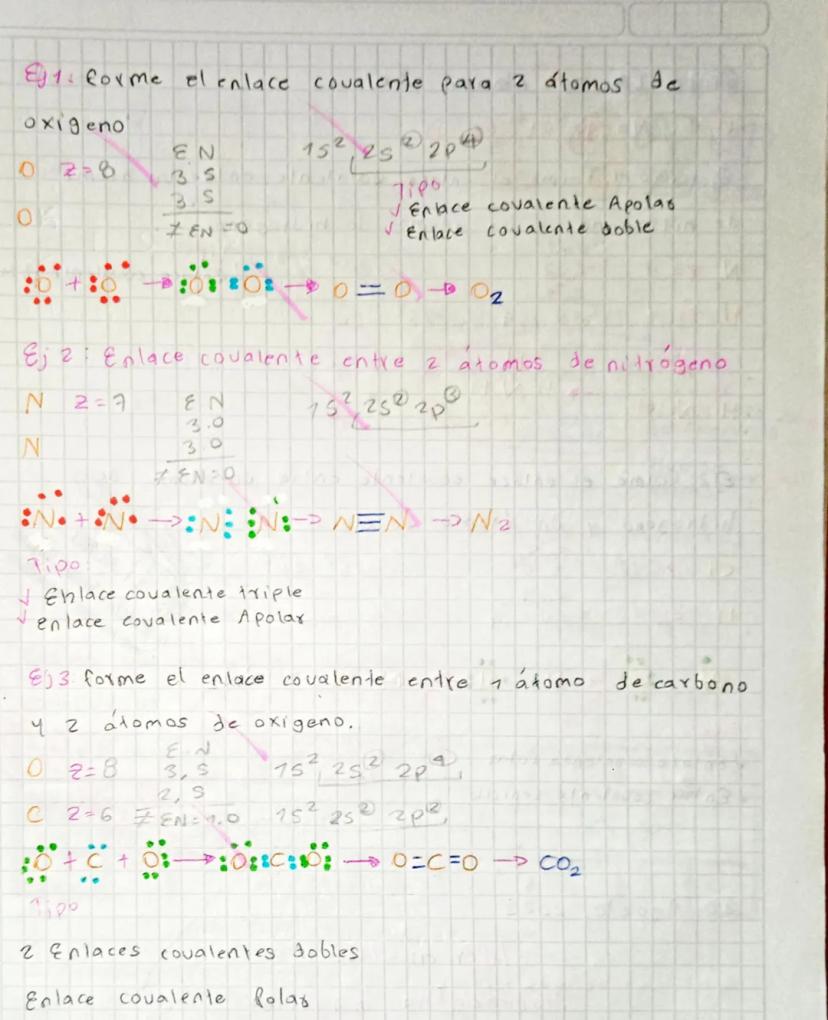 Ej 1: forme el enlace covalente para 2 átomos de
oxigeno
O Z=8 EN 1s² 2s² 2p⁴
3.5
O 3.5
≠ EN=0
Tipo
√ Enlace covalente Apolar
√ Enlace covalente doble
O + O → O O → O=O → O₂
Ej 2: Enlace covalente entre 2 átomos de nitrógeno
N Z=7 EN 1s² 2s² 2p³
3.0
N 3.0
≠ EN=0
N + N → N N → N≡N → N₂
Tipo:
√ Enlace covalente triple
√ enlace covalente Apolar
Ej 3 forme el enlace covalente entre 1 átomo de carbono
y 2 átomos de oxigeno.
EN
O Z=8 3,5 1s² 2s² 2p⁴
2,5
C Z=6 ≠ EN=1.0 1s² 2s² 2p²
O + C + O → O C O → O=C=O → CO₂
Tipo
2 Enlaces covalentes dobles
Enlace covalente Polar